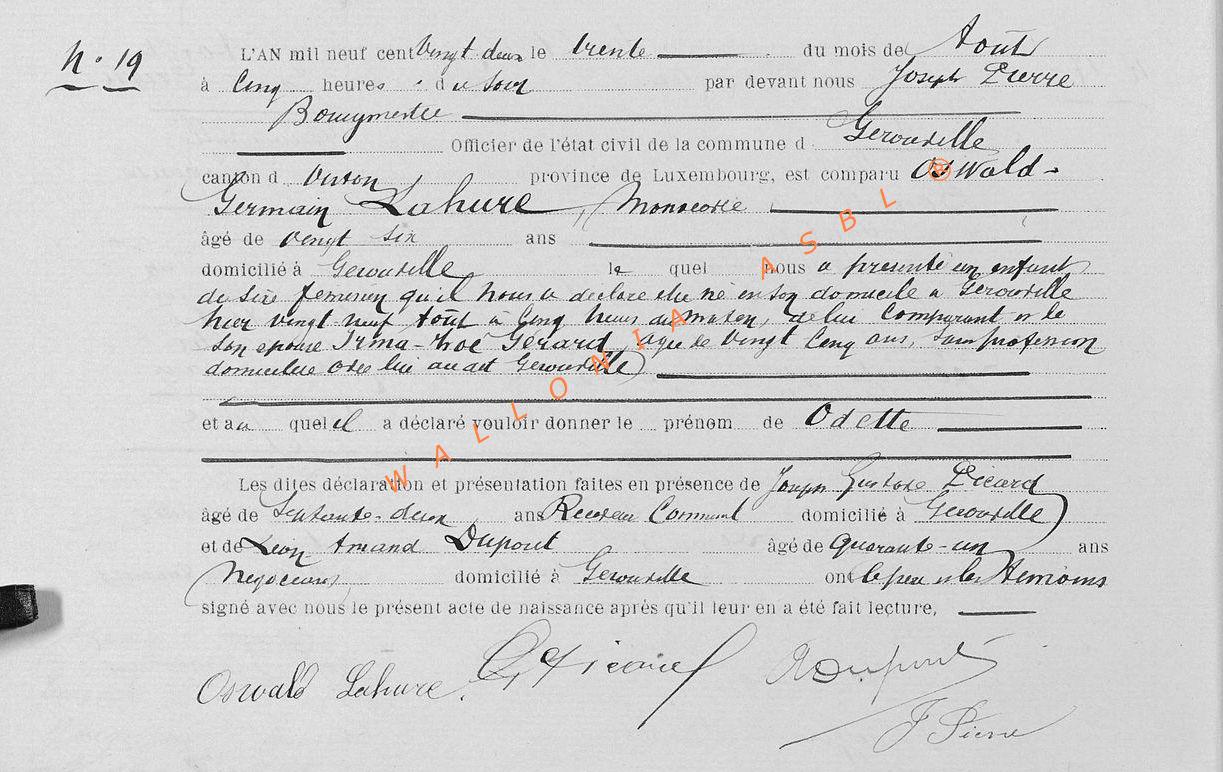 N° 19
L'AN mil neuf cent Vingt deux le trente du mois de Août
à Cinq heures du Soir par devant nous Joseph Pierre
Bourgmestre
Officier de l'état civil de la commune d Gérouville
canton d Virton province de Luxembourg, est comparu Oswald-
Germain Lahure,
âgé de Vingt Six ans
domicilié à Gérouville le quel nous a présenté un enfant
du sexe féminin qu'il nous a déclaré être né en son domicile à Gérouville
hier vingt neuf Août à Cinq heures du matin, de lui Comparant et de
Son épouse Irma-Zoé Gérard, agée de Vingt Cinq ans, Sans profession
domiciliée avec lui au dit Gérouville
et au quel il a déclaré vouloir donner le prénom de Odette
Les dites déclaration et présentation faites en présence de Joseph Gustave Picard
âgé de Septante-deux ans Receveur Communal domicilié à Gérouville
et de Léon Amand Dupont âgé de Quarante-un ans
Négociant domicilié à Gérouville ont le père et les témoins
signé avec nous le présent acte de naissance après qu'il leur en a été fait lecture,
Oswald Lahure. G Picard Dupont
J Pierre
WALLONIA ASBL